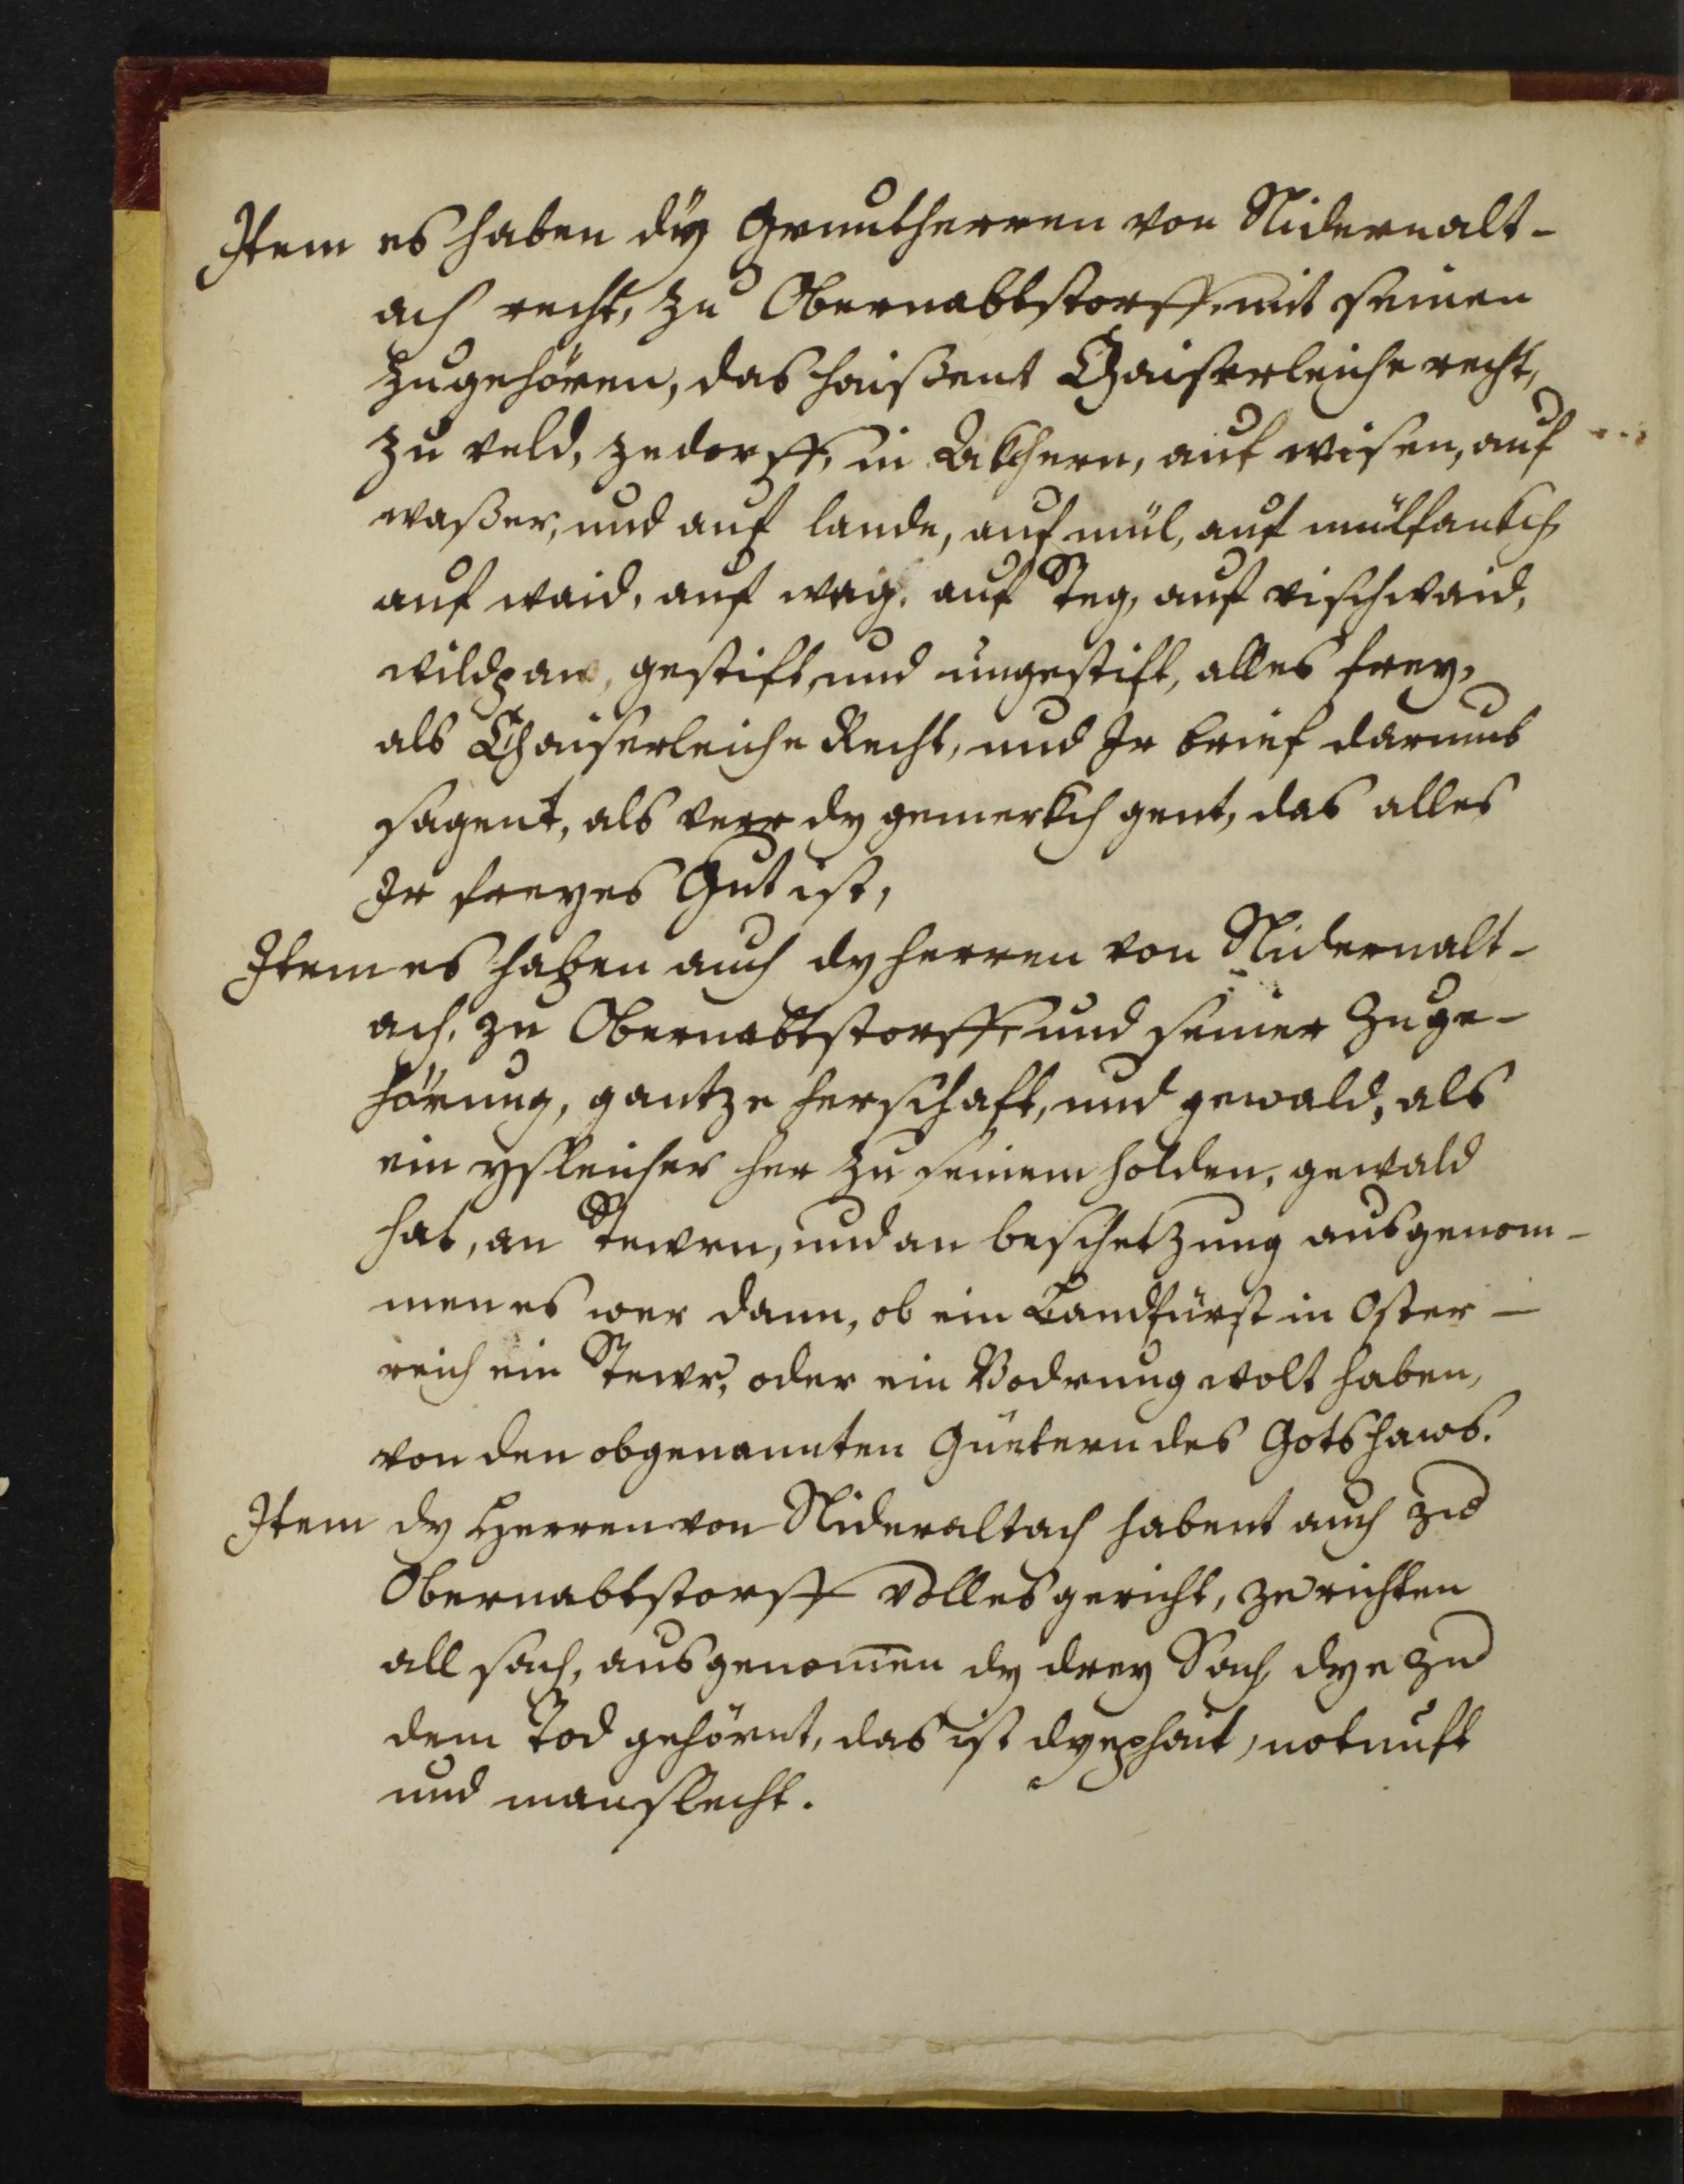 Item es haben dÿ Gruntherren von Nidernalt-
ach recht, zu Obernabbtstorff, mit seinen
zugehören, das haissent Chaiserleiche recht,
zu veld, ze dorff, in Äkchern, auf wisen, auf
waßer, und auf lande, auf mül, auf mülfankch,
auf waid, auf weg, auf Steg, auf vischwaid,
wildpan, gestift, und ungestift, alles frey,
als Chaiserleiche Recht, und Ir brief darumb
sagent, als verr dy gemerkch gent, das alles
Ir freyes Gut ist,
Item es haben auch dy herren von Nidernalt-
ach, zu Obernabbtstorff, und seiner Zuge-
hörung, gantze herschaft, und gewald, als
ein ysleicher her zu seinem holden, gewald
hat, an Stewrn, und an beschetzung ausgenom-
men es wer dann, ob ein Landfürst in Oster-
reich ein Stewr, oder ein Vodrung wolt haben,
von den obgenannten Güetern des Gotshaws.
Item dy Herren von Nideraltach habent auch zu
Obernabbtstorff volles gericht, ze richten
all sach, ausgenomen dy drey Sach, dye zu
dem Tod gehörnt, das ist dyephait, notnuft
und manslecht.